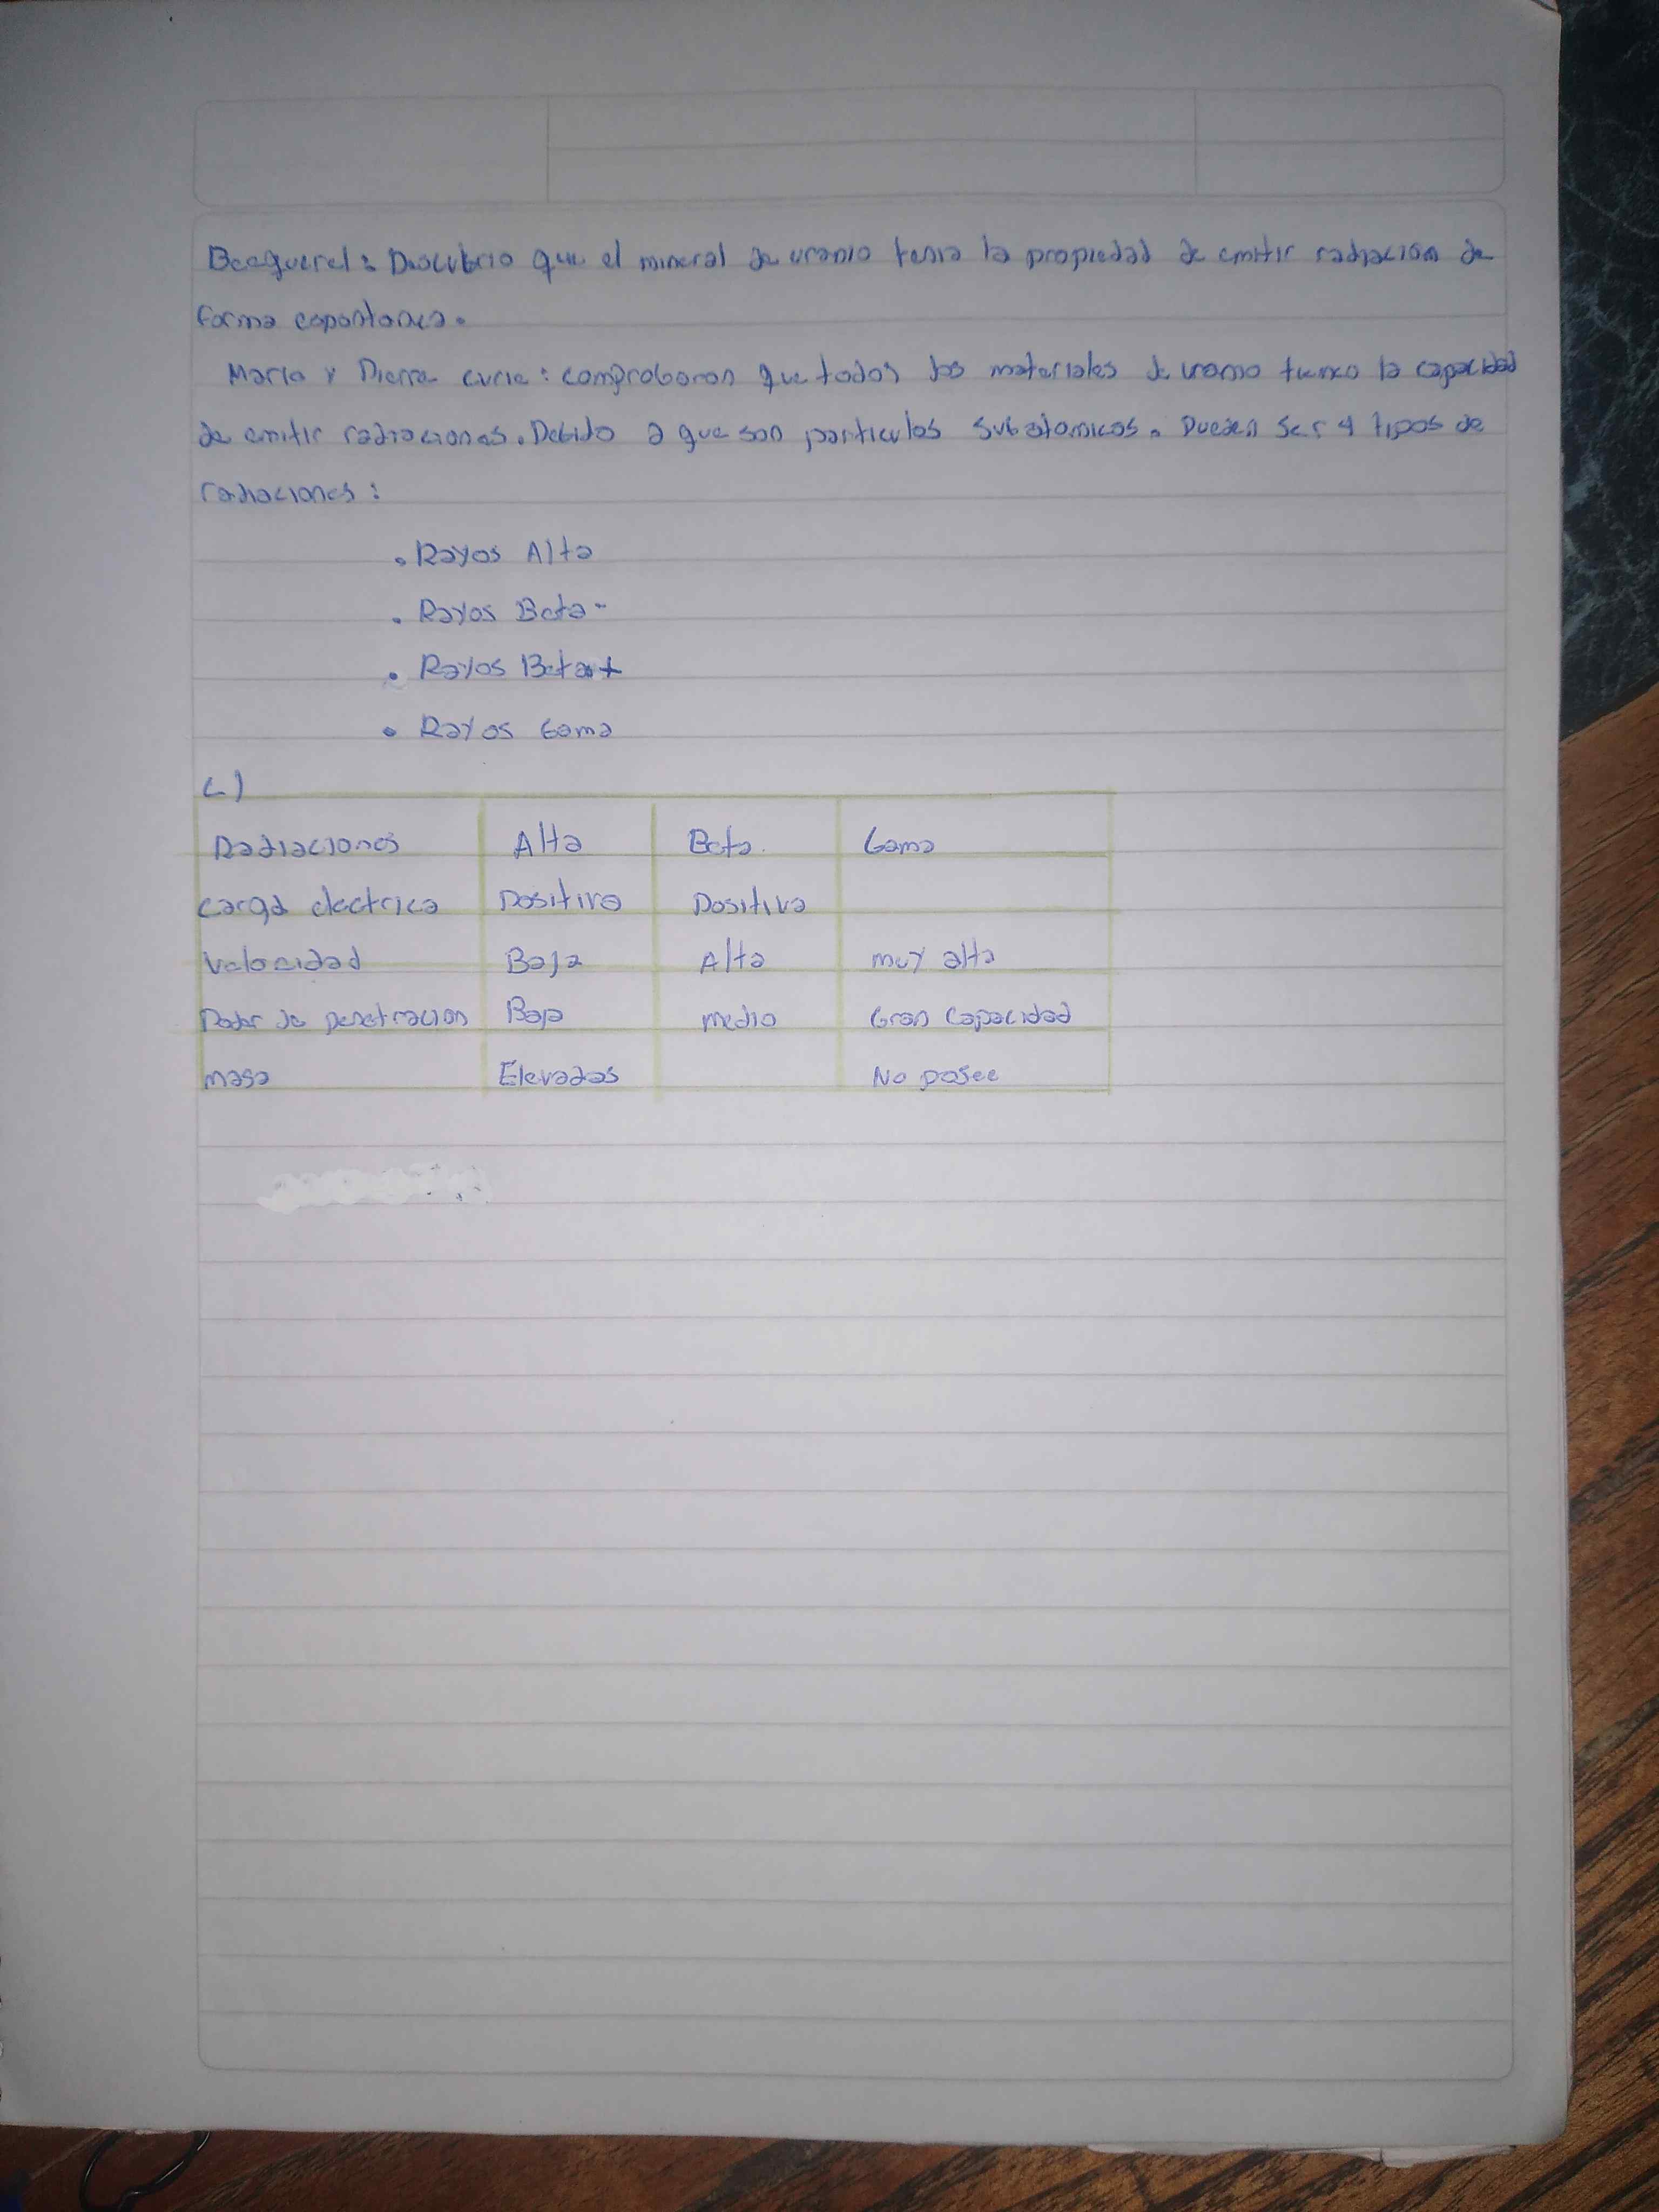 Becquerel: Descubrio que el mineral de uranio tenia la propiedad de emitir radiacion de
forma espontanea.
Maria y Pierre curie: comprobaron que todos los materiales de uranio tienen la capacidad
de emitir radiaciones. Debido a que son particulas subatomicas. Pueden ser 4 tipos de
radiaciones:
• Rayos Alta
• Rayos Beta -
• Rayos Beta +
• Rayos Gama
C)
Radiaciones Alta Beta Gama
carga electrica Positiva Positiva
Velocidad Baja Alta muy alta
Poder de penetracion Baja medio Gran capacidad
masa Elevadas No posee